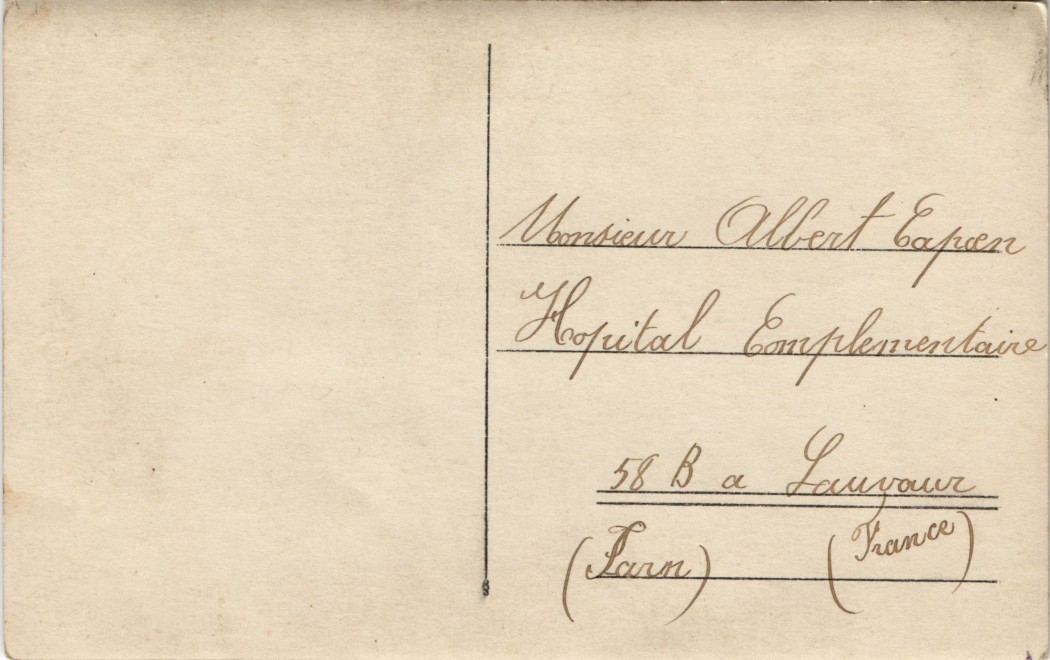 Monsieur Albert Capen
Hopital Complementaire
58 B a Lauvaur
(Tarn) (France)